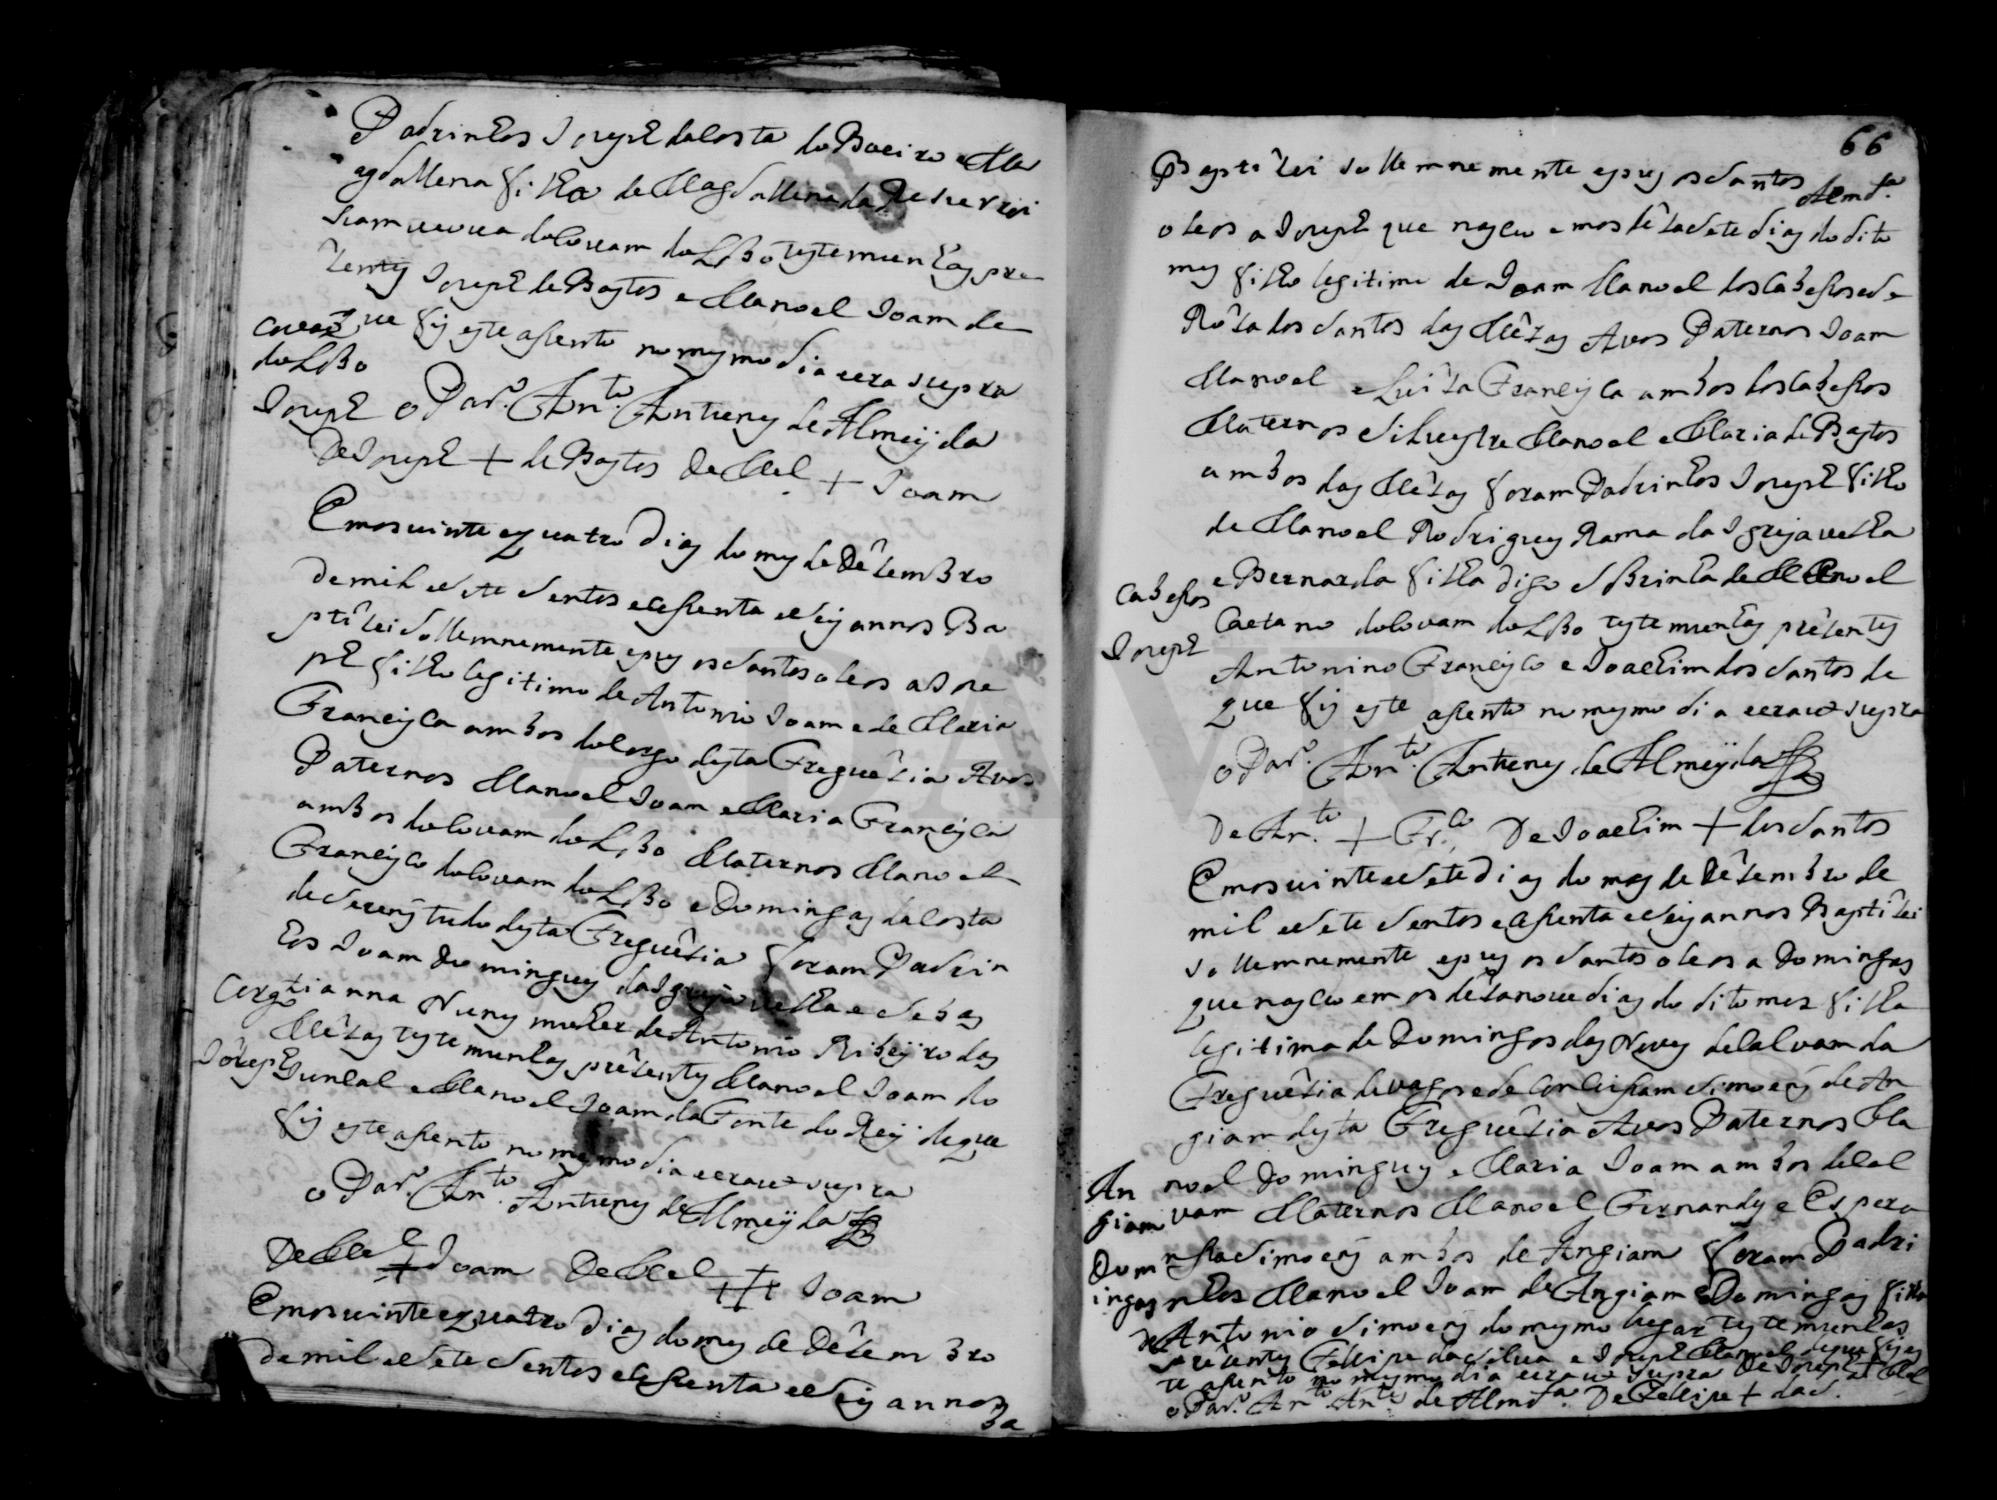 Padrinhos Joseph da Costa do Boeiro e Ma
agdallena filha de Magdallena da
viuva do Covam do Lobo testemunhas pre
zentes Joseph de Bastos e Manoel Joam de
que fis este asento no mesmo dia e era supra
Covaõ
do Lobo
Joseph
o Par.º Ant.º Antunes de Almeijda
De Joseph + de Bastos De Mel + Joam
Em os vinte e quatro dias do mes de Dezembro
de mil e sete sentos e sesenta e seis annos Ba
ptizei sollemnemente e pus os santos oleos a Jose
ph filho legitimo de Antonio Joam e de Maria
Francisca ambos do Corgo desta Freguezia Avos
Paternos Manoel Joam e Maria Francisca
ambos do Covam do Lobo Maternos Manoel
Francisco do Covam do Lobo e Domingas da Costa
de tudo desta Freguezia foram Padrin
hos Joam Domingues da Igreja velha e Sebas
tianna Nunes mulher de Antonio Ribeijro das
Mezas testemunhas prezentes Manoel Joam do
Juncal e Manoel Joam da Fonte do Reij de que
fis este asento no mesmo dia e era ut supra
Corgo
Joseph
o Par.º Ant.º Antunes de Almeijda
De Mel + Joam De Mel + Joam
Em os vinte e quatro dias do mes de Dezembro
de mil e sete sentos e sesenta e seis annos
Ba
66
Almd.ª
Baptizei sollemnemente e pus os santos
oleos a Joseph que nasceo em os dezasete dias do dito
mes filho legitimo de Joam Manoel dos Cabesos e de
Roza dos Santos das Mezas Avos Paternos Joam
Manoel e Luiza Francisca ambos dos Cabesos
Maternos Silvestre Manoel e Maria de Bastos
ambos das Mezas foram Padrinhos Joseph filho
de Manoel Rodrigues Rama da Igreja velha
e Bernarda filha digo sobrinha de Manoel
Caetano do Covam do Lobo testemunhas prezentes
Antonino Francisco e Joachim dos Santos de
que fis este asento no mesmo dia e era ut supra
Cabesos
Joseph
o Par.º Ant.º Antunes de Almeijda
De Ant.º + Fr.co De Joachim + dos Santos
Em os vinte e sete dias do mes de Dezembro de
mil e sete sentos e sesenta e seis annos Baptizei
sollemnemente e pus os santos oleos a Domingas
que nasceo em os dezanove dias do dito mez filha
legitima de Domingos das Neves de Calvam da
Freguezia de vagos e de Conceisam Simoens de An
giam desta Freguezia Avos Paternos Ma
noel Domingues e Maria Joam ambos de Cal
vam Maternos Manoel Fernandes e Espera
nsa Simoens ambos de Angiam foram Padri
nhos Manoel Joam de Angiam e Domingas filha
de Antonio Simoens do mesmo lugar testemunhas
prezentes Fellipe da Silva e Joseph Manoel de que fis es
te asento no mesmo dia e era ut supra De Joseph + Mel
o Par.º Ant.º Ant.es de Almd.ª De Fellipe + da S.
An
giam
Dom
ingas